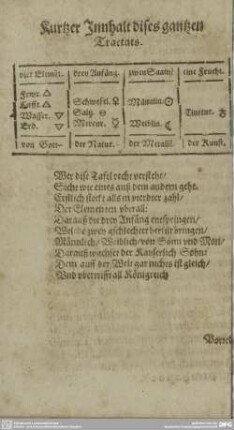 Kurtzer Innhalt dises gantzen
Tractats.
vier Elemēt. drey Anfäng. zween Saam. eine Frucht.
Fewr. 🜂
Lufft. 🜁 Schwefel. 🜍 Männlin. ☉
Wasser. 🜄 Saltz. 🜔 Tinctur.
Erd. 🜃 Mercur. ☿ Weiblin. ☾
von Gott. der Natur. der Metall. der Kunst.
Wer dise Tafel recht verstehe/
Sicht wie eines auß dem andern geht.
Erstlich steckt alls in vierdter zahl/
Der Elementen vberall:
Darauß die drey Anfäng entspringen/
Welche zwey gschlechter herfür bringen/
Männlich/ Weiblich/ von Sonn vnd Mon/
Darauß wachset der Kayserlich Sohn/
Dem auff der Welt gar nichts ist gleich/
Vnd vbertrifft all Königreich